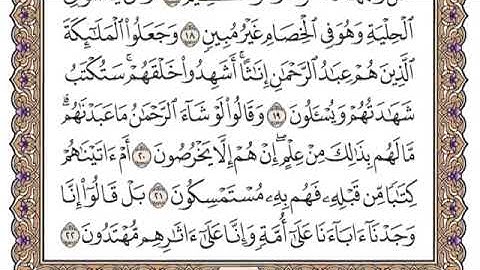 ٱلۡحِلۡيَةِ وَهُوَ فِي ٱلۡخِصَامِ غَيۡرُ مُبِينٖ ١٨ وَجَعَلُواْ ٱلۡمَلَٰٓئِكَةَ
ٱلَّذِينَ هُمۡ عِبَٰدُ ٱلرَّحۡمَٰنِ إِنَٰثًاۚ أَشَهِدُواْ خَلۡقَهُمۡۚ سَتُكۡتَبُ
شَهَٰدَتُهُمۡ وَيُسۡـَٔلُونَ ١٩ وَقَالُواْ لَوۡ شَآءَ ٱلرَّحۡمَٰنُ مَا عَبَدۡنَٰهُمۗ
مَّا لَهُم بِذَٰلِكَ مِنۡ عِلۡمٍۖ إِنۡ هُمۡ إِلَّا يَخۡرُصُونَ ٢٠ أَمۡ ءَاتَيۡنَٰهُمۡ
كِتَٰبٗا مِّن قَبۡلِهِۦ فَهُم بِهِۦ مُسۡتَمۡسِكُونَ ٢١ بَلۡ قَالُوٓاْ إِنَّا
وَجَدۡنَآ ءَابَآءَنَا عَلَىٰٓ أُمَّةٖ وَإِنَّا عَلَىٰٓ ءَاثَٰرِهِم مُّهۡتَدُونَ ٢٢